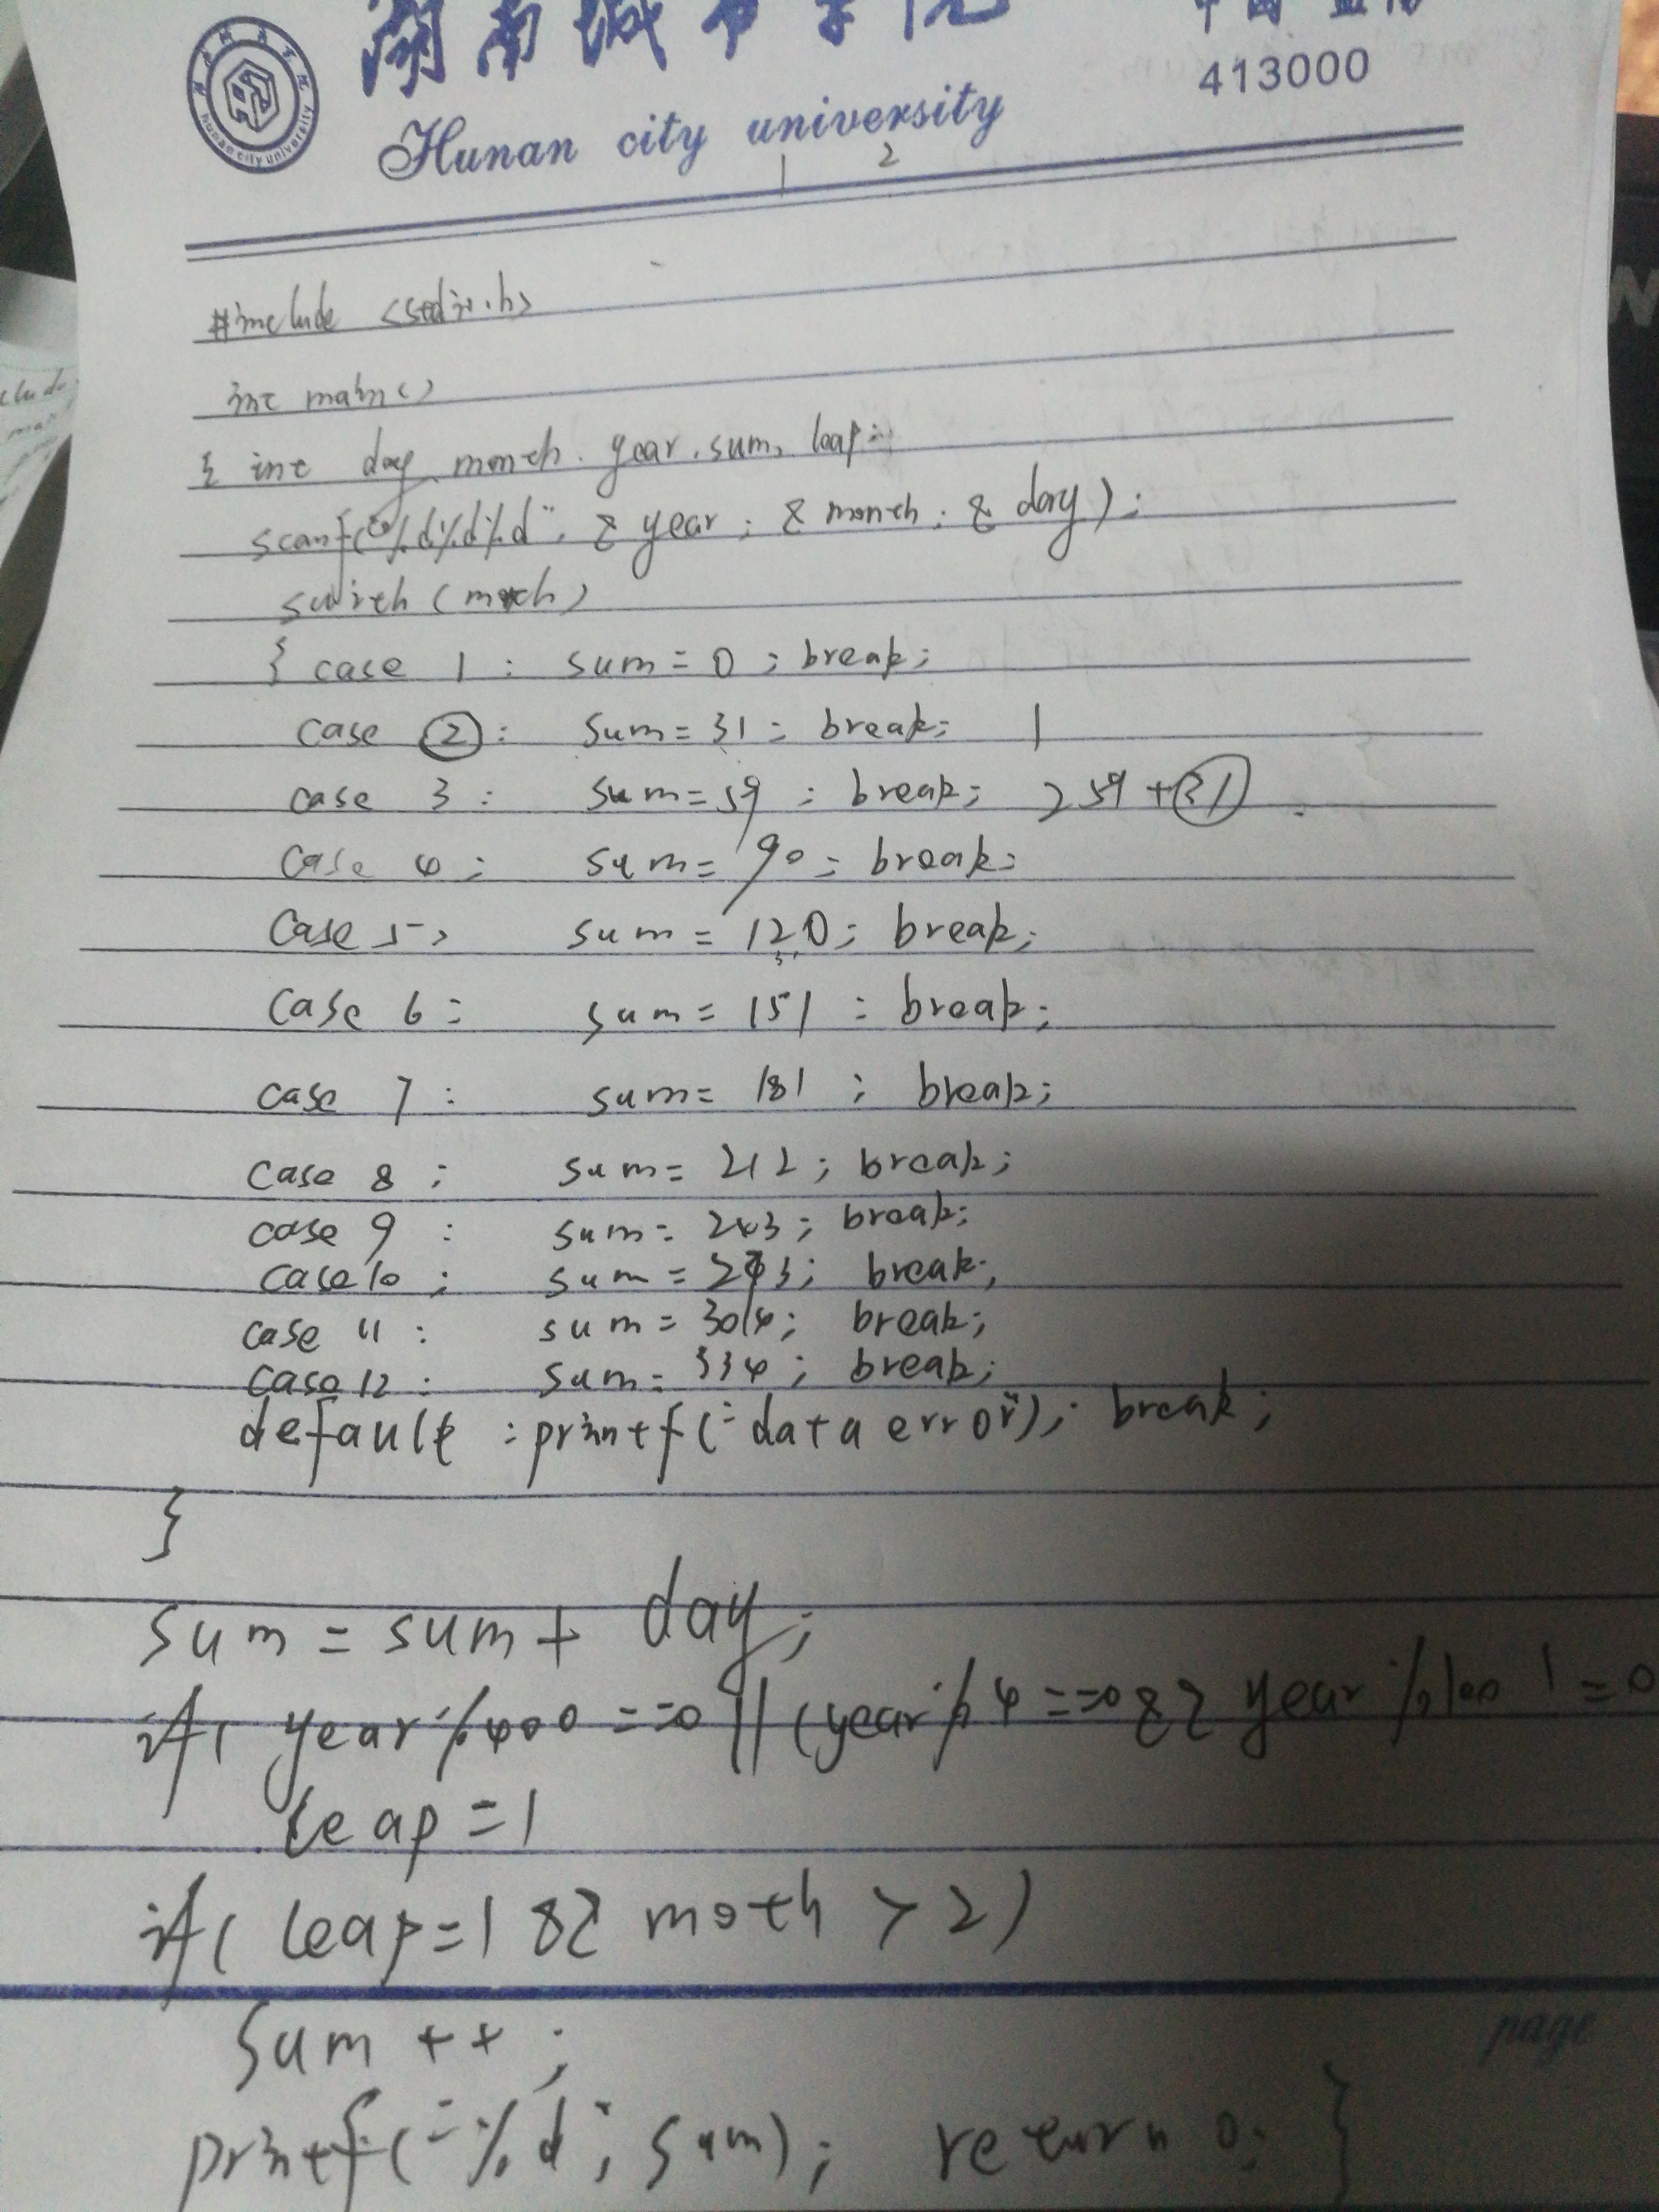 湖南城市学院 中国 益阳
413000
HUNAN CITY
hunan city university
Hunan city university
1 2
#include <stdio.h>
int main()
{ int day, month, year, sum, leap;
scanf("%d%d%d", & year, & month, & day);
switch (month)
{ case 1 : sum = 0 ; break;
case 2 : sum = 31 ; break; 1
case 3 : sum = 59 ; break; 2 59 + 31
case 4 : sum = 90 ; break;
case 5 : sum = 120 ; break;
case 6 : sum = 151 ; break;
case 7 : sum = 181 ; break;
case 8 ; sum = 212 ; break;
case 9 : sum = 243 ; break;
case 10 ; sum = 273 ; break;
case 11 : sum = 304 ; break;
case 12 : sum = 334 ; break;
default : printf("data error"); break;
}
sum = sum + day;
if( year%400 ==0 || (year%4 ==0 && year%100 !=0
leap =1
if( leap=1 && moth > 2)
sum ++ ;
printf("%d", sum); return 0; }
page